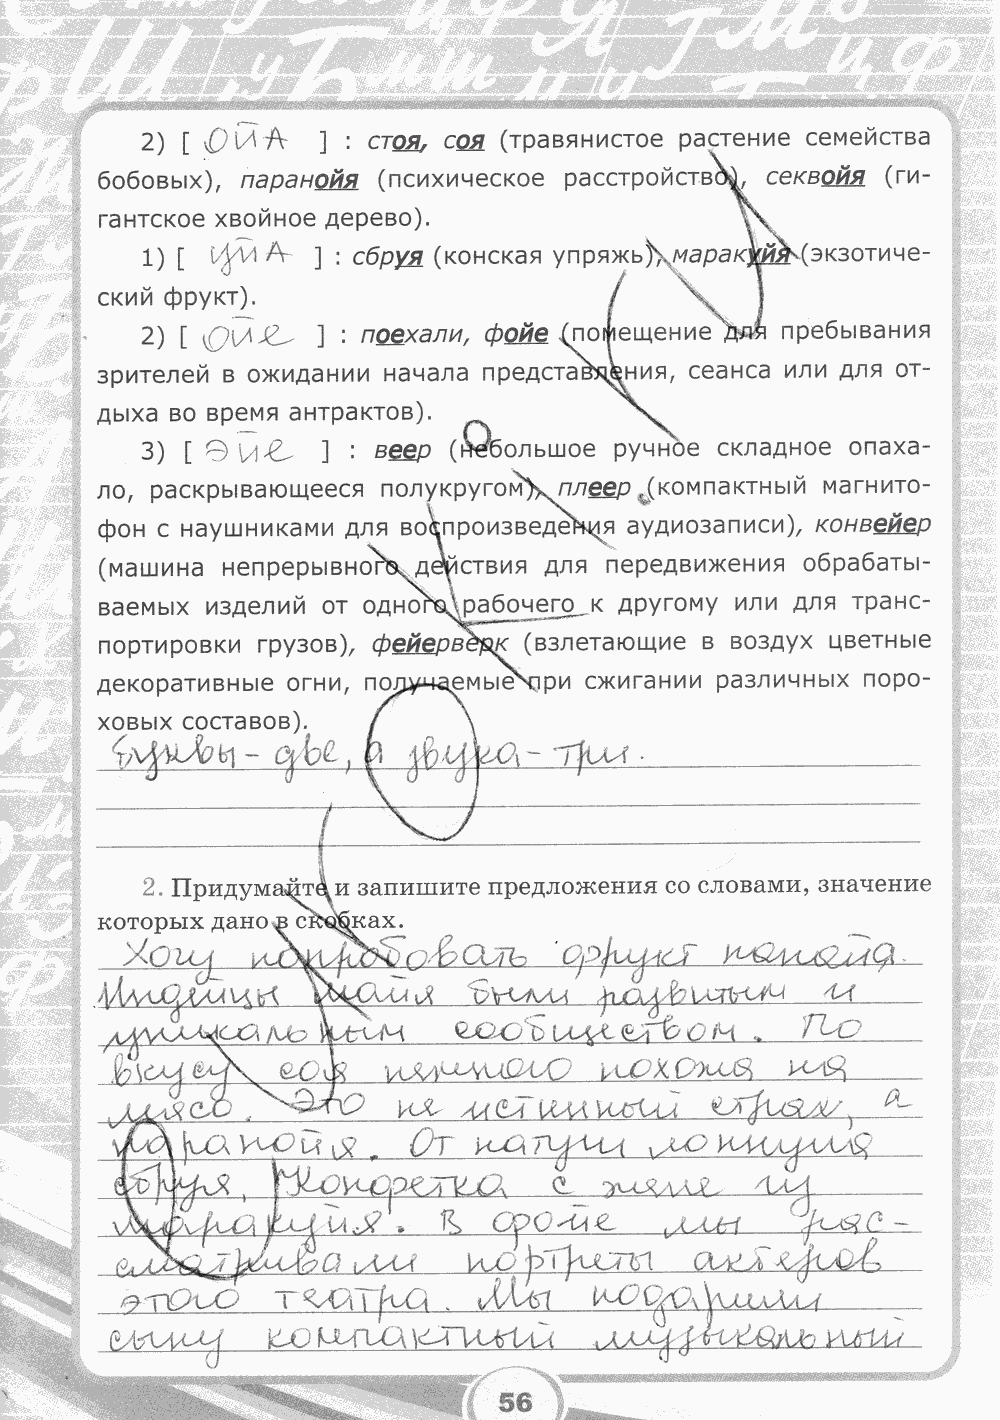 2) [ ойа ] : стоя, соя (травянистое растение семейства
бобовых), паранойя (психическое расстройство), секвойя (ги-
гантское хвойное дерево).
1) [ уйа ] : сбруя (конская упряжь), маракуйя (экзотиче-
ский фрукт).
2) [ ойе ] : поехали, фойе (помещение для пребывания
зрителей в ожидании начала представления, сеанса или для от-
дыха во время антрактов).
3) [ эйе ] : веер (небольшое ручное складное опаха-
ло, раскрывающееся полукругом), плеер (компактный магнито-
фон с наушниками для воспроизведения аудиозаписи), конвейер
(машина непрерывного действия для передвижения обрабаты-
ваемых изделий от одного рабочего к другому или для транс-
портировки грузов), фейерверк (взлетающие в воздух цветные
декоративные огни, получаемые при сжигании различных поро-
ховых составов).
Буквы - две, а звука - три.
2. Придумайте и запишите предложения со словами, значение
которых дано в скобках.
Хочу попробовать фрукт папайа.
Индейцы майя были развитым и
уникальным сообществом. По
вкусу соя немного похожа на
мясо. Это не истинный страх, а
паранойя. От натуги лопнула
сбруя. Конфетка с желе из
маракуйя. В фойе мы рас-
сматривали портреты актеров
этого театра. Мы подарили
сыну компактный музыкальный
56